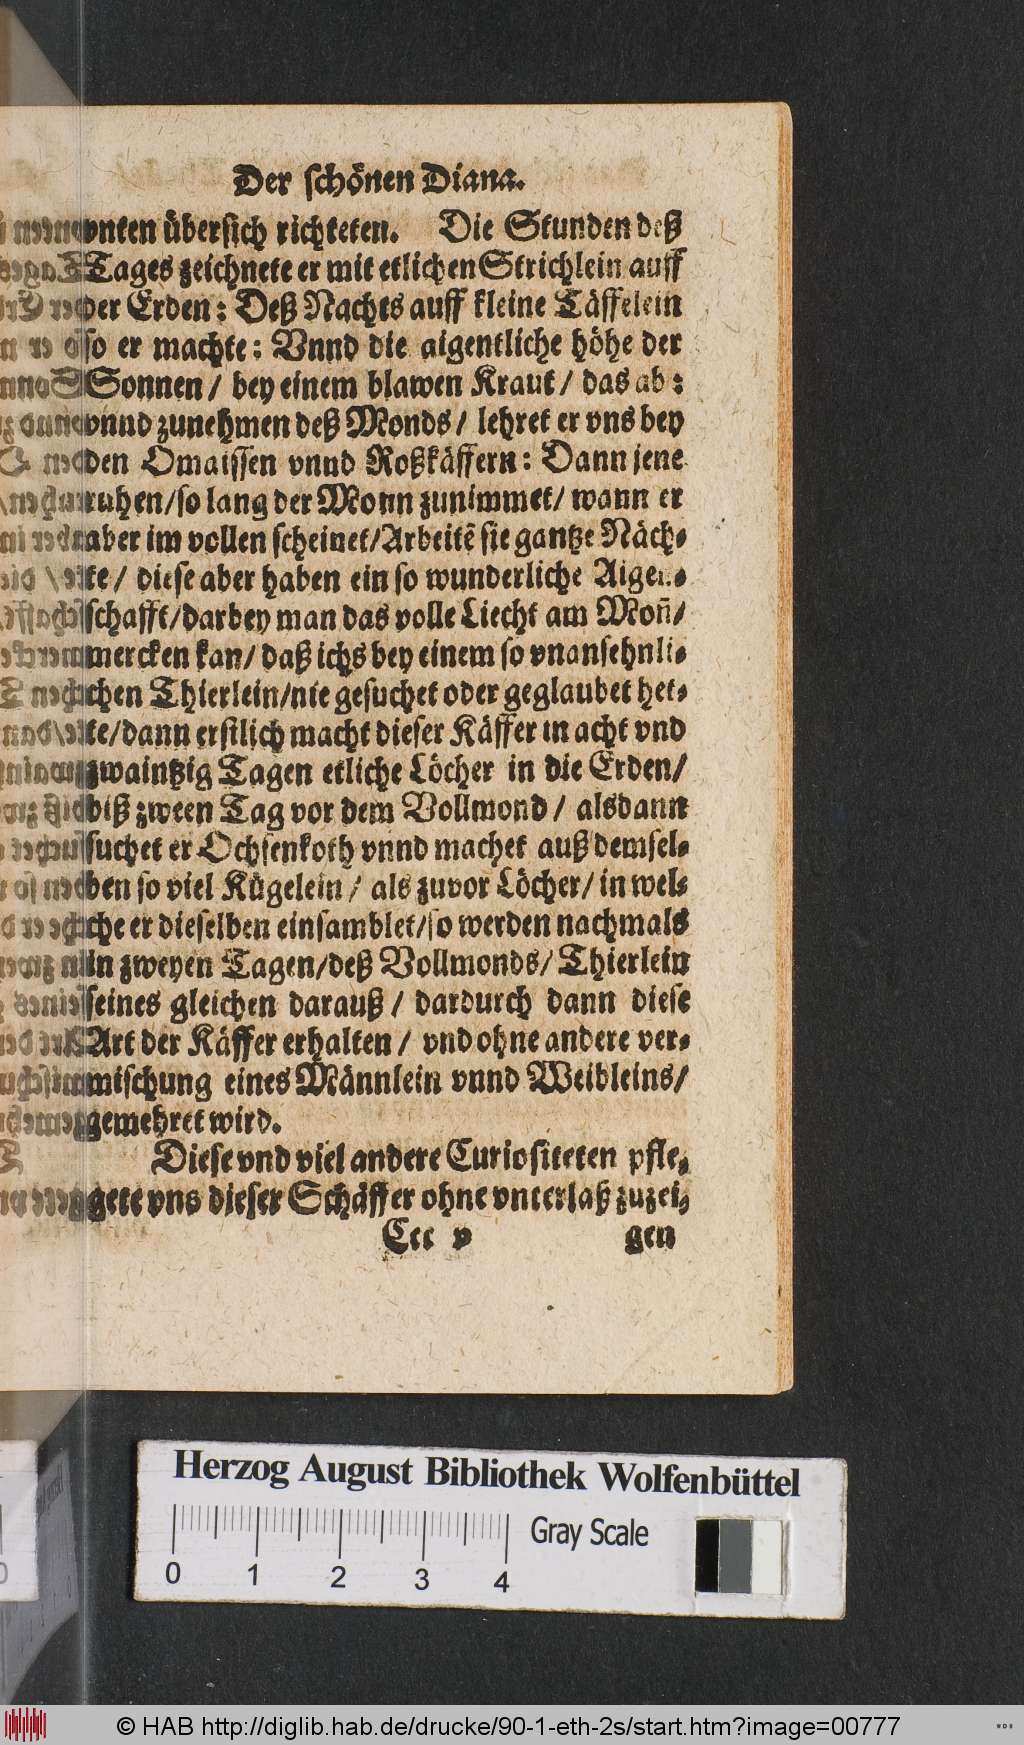 Der schönen Diana.
vnten übersich richteten. Die Stunden deß
Tages zeichnete er mit etlichen Strichlein auff
der Erden: Deß Nachts auff kleine Täffelein
so er machte: Vnnd die aigentliche höhe der
Sonnen/ bey einem blawen Kraut/ das ab:
vnnd zunehmen deß Monds/ lehret er vns bey
den Omaissen vnnd Roßkäffern: Dann jene
ruhen/so lang der Monn zunimmet/ wann er
aber im vollen scheinet/Arbeitē sie gantze Näch-
te/ diese aber haben ein so wunderliche Aigen-
schafft/darbey man das volle Liecht am Moñ/
mercken kan/ daß ichs bey einem so vnansehnli-
chen Thierlein/nie gesuchet oder geglaubet het-
te/dann erstlich macht dieser Käffer in acht vnd
zwaintzig Tagen etliche Löcher in die Erden/
biß zween Tag vor dem Vollmond/ alsdann
suchet er Ochsenkoth vnnd machet auß demsel-
ben so viel Kügelein/ als zuvor Löcher/ in wel-
che er dieselben einsamblet/so werden nachmals
in zweyen Tagen/deß Vollmonds/ Thierlein
seines gleichen darauß/ dardurch dann diese
Art der Käffer erhalten/ vnd ohne andere ver-
mischung eines Männlein vnnd Weibleins/
gemehret wird.
Diese vnd viel andere Curiositeten pfle-
gete vns dieser Schäffer ohne vnterlaß zuzei-
Ccc v gen
Herzog August Bibliothek Wolfenbüttel
Gray Scale
0 1 2 3 4
© HAB http://diglib.hab.de/drucke/90-1-eth-2s/start.htm?image=00777